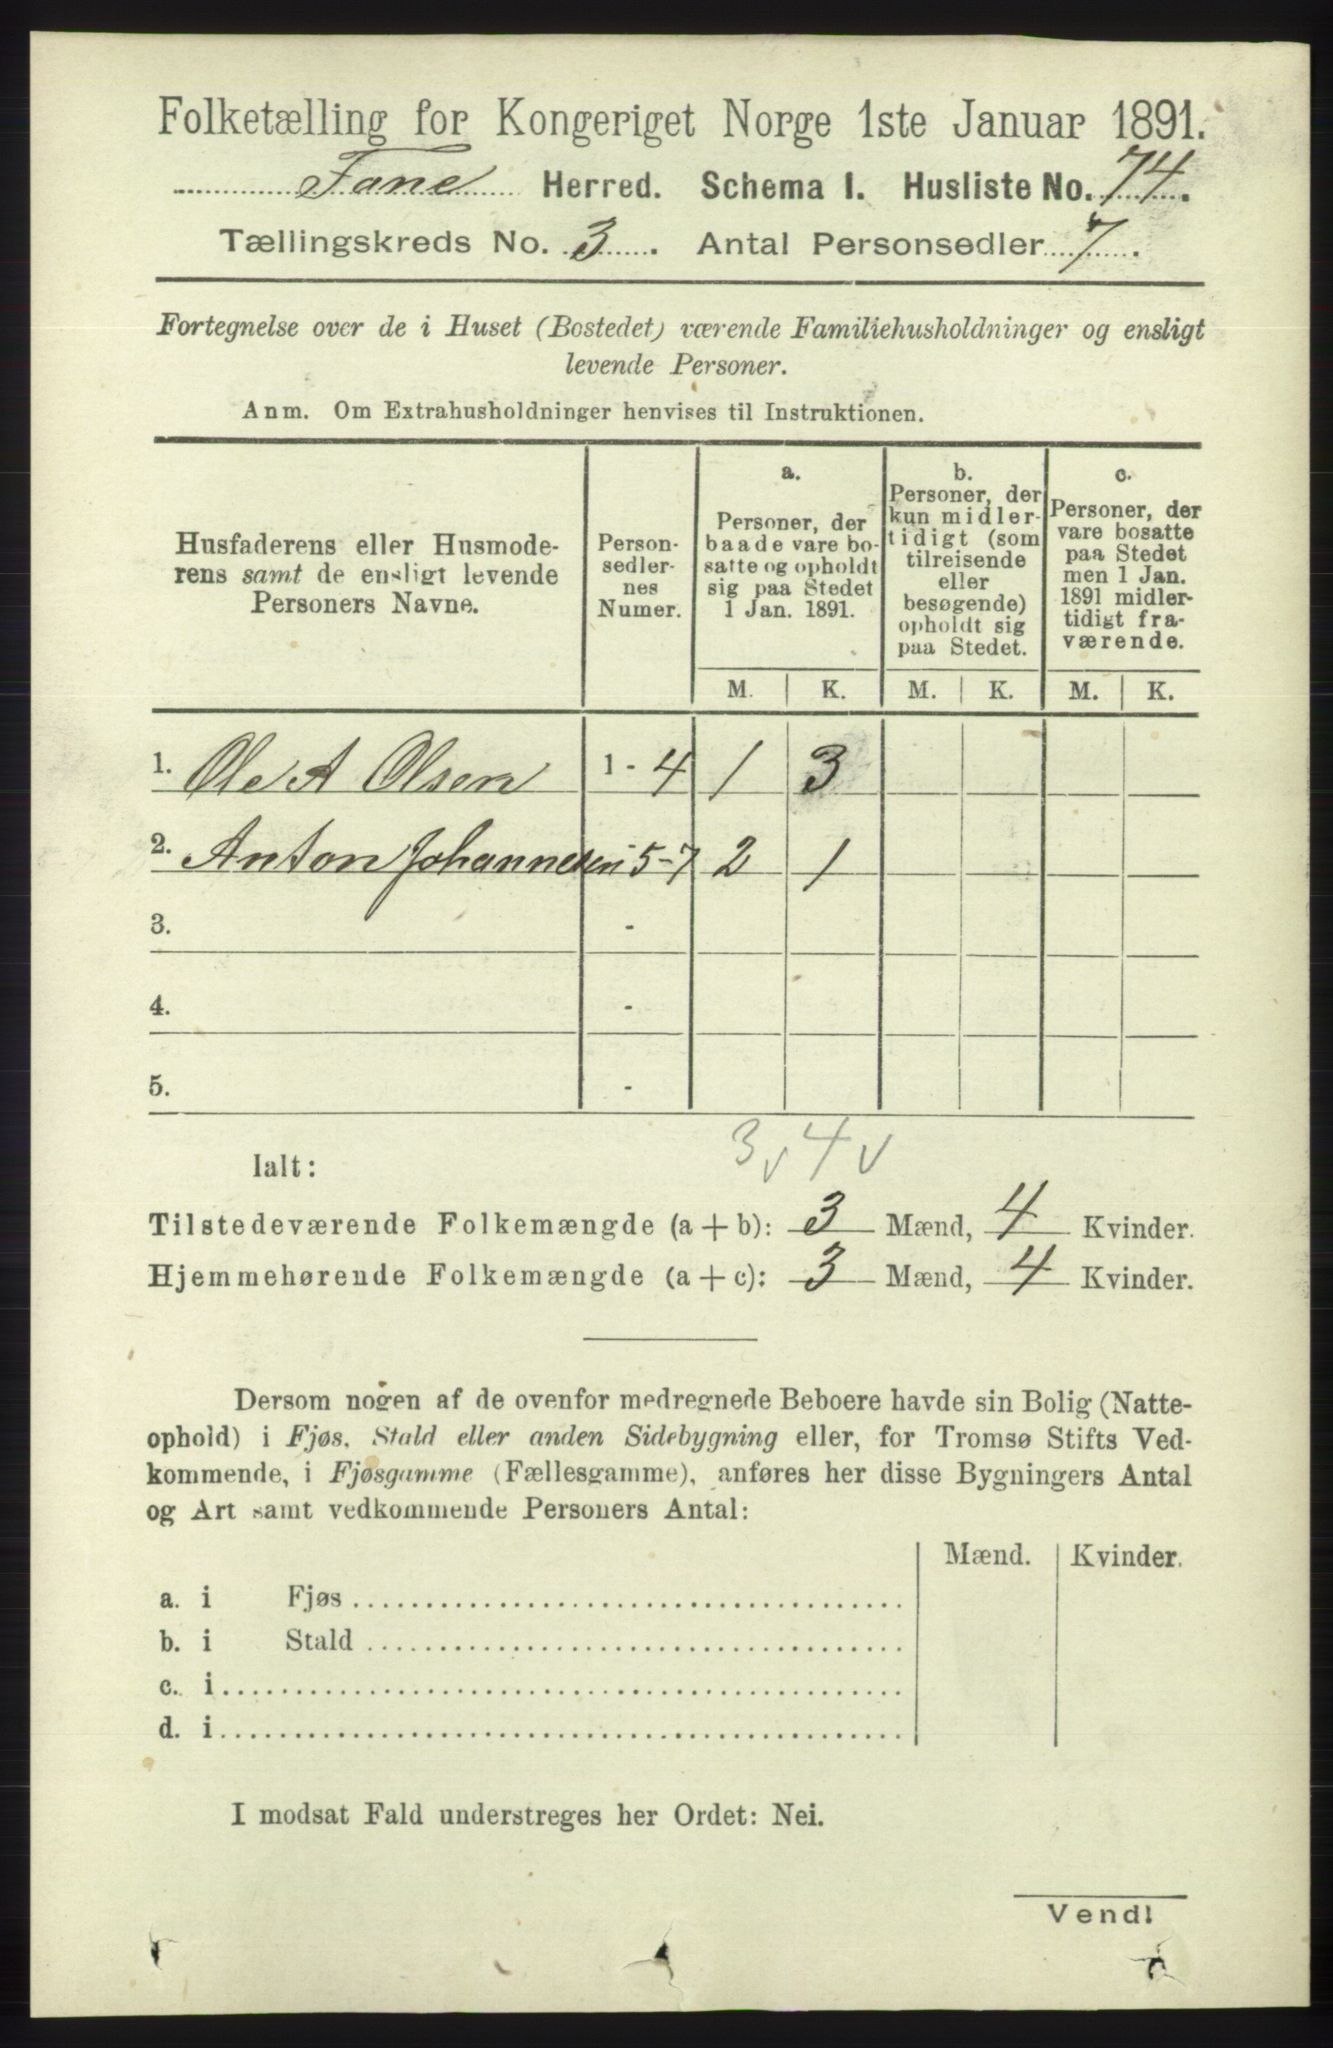 Folketælling for Kongeriget Norge 1ste Januar 1891.
Fane Herred. Schema I. Husliste No. 74.
Tællingskreds No. 3. Antal Personsedler 7.
Fortegnelse over de i Huset (Bostedet) værende Familiehusholdninger og ensligt
levende Personer.
Anm. Om Extrahusholdninger henvises til Instruktionen.
Husfaderens eller Husmode-
rens samt de ensligt levende
Personers Navne.
Person-
sedler-
nes
Numer.
a.
Personer, der
baade vare bo-
satte og opholdt
sig paa Stedet
1 Jan. 1891.
b.
Personer, der
kun midler-
tidigt (som
tilreisende
eller
besøgende)
opholdt sig
paa Stedet.
c.
Personer, der
vare bosatte
paa Stedet
men 1 Jan.
1891 midler-
tidigt fra-
værende.
M. K. M. K. M. K.
1. Ole A Olsen 1 - 4 1 3
2. Anton Johannesen 5-7 2 1
3. -
4. -
5. -
3 v 4 v
Ialt:
Tilstedeværende Folkemængde (a + b): 3 Mænd, 4 Kvinder.
Hjemmehørende Folkemængde (a + c): 3 Mænd, 4 Kvinder.
Dersom nogen af de ovenfor medregnede Beboere havde sin Bolig (Natte-
ophold) i Fjøs, Stald eller anden Sidebygning eller, for Tromsø Stifts Ved-
kommende, i Fjøsgamme (Fællesgamme), anføres her disse Bygningers Antal
og Art samt vedkommende Personers Antal:
Mænd. Kvinder.
a. i Fjøs
b. i Stald
c. i
d. i
I modsat Fald understreges her Ordet: Nei.
Vend!